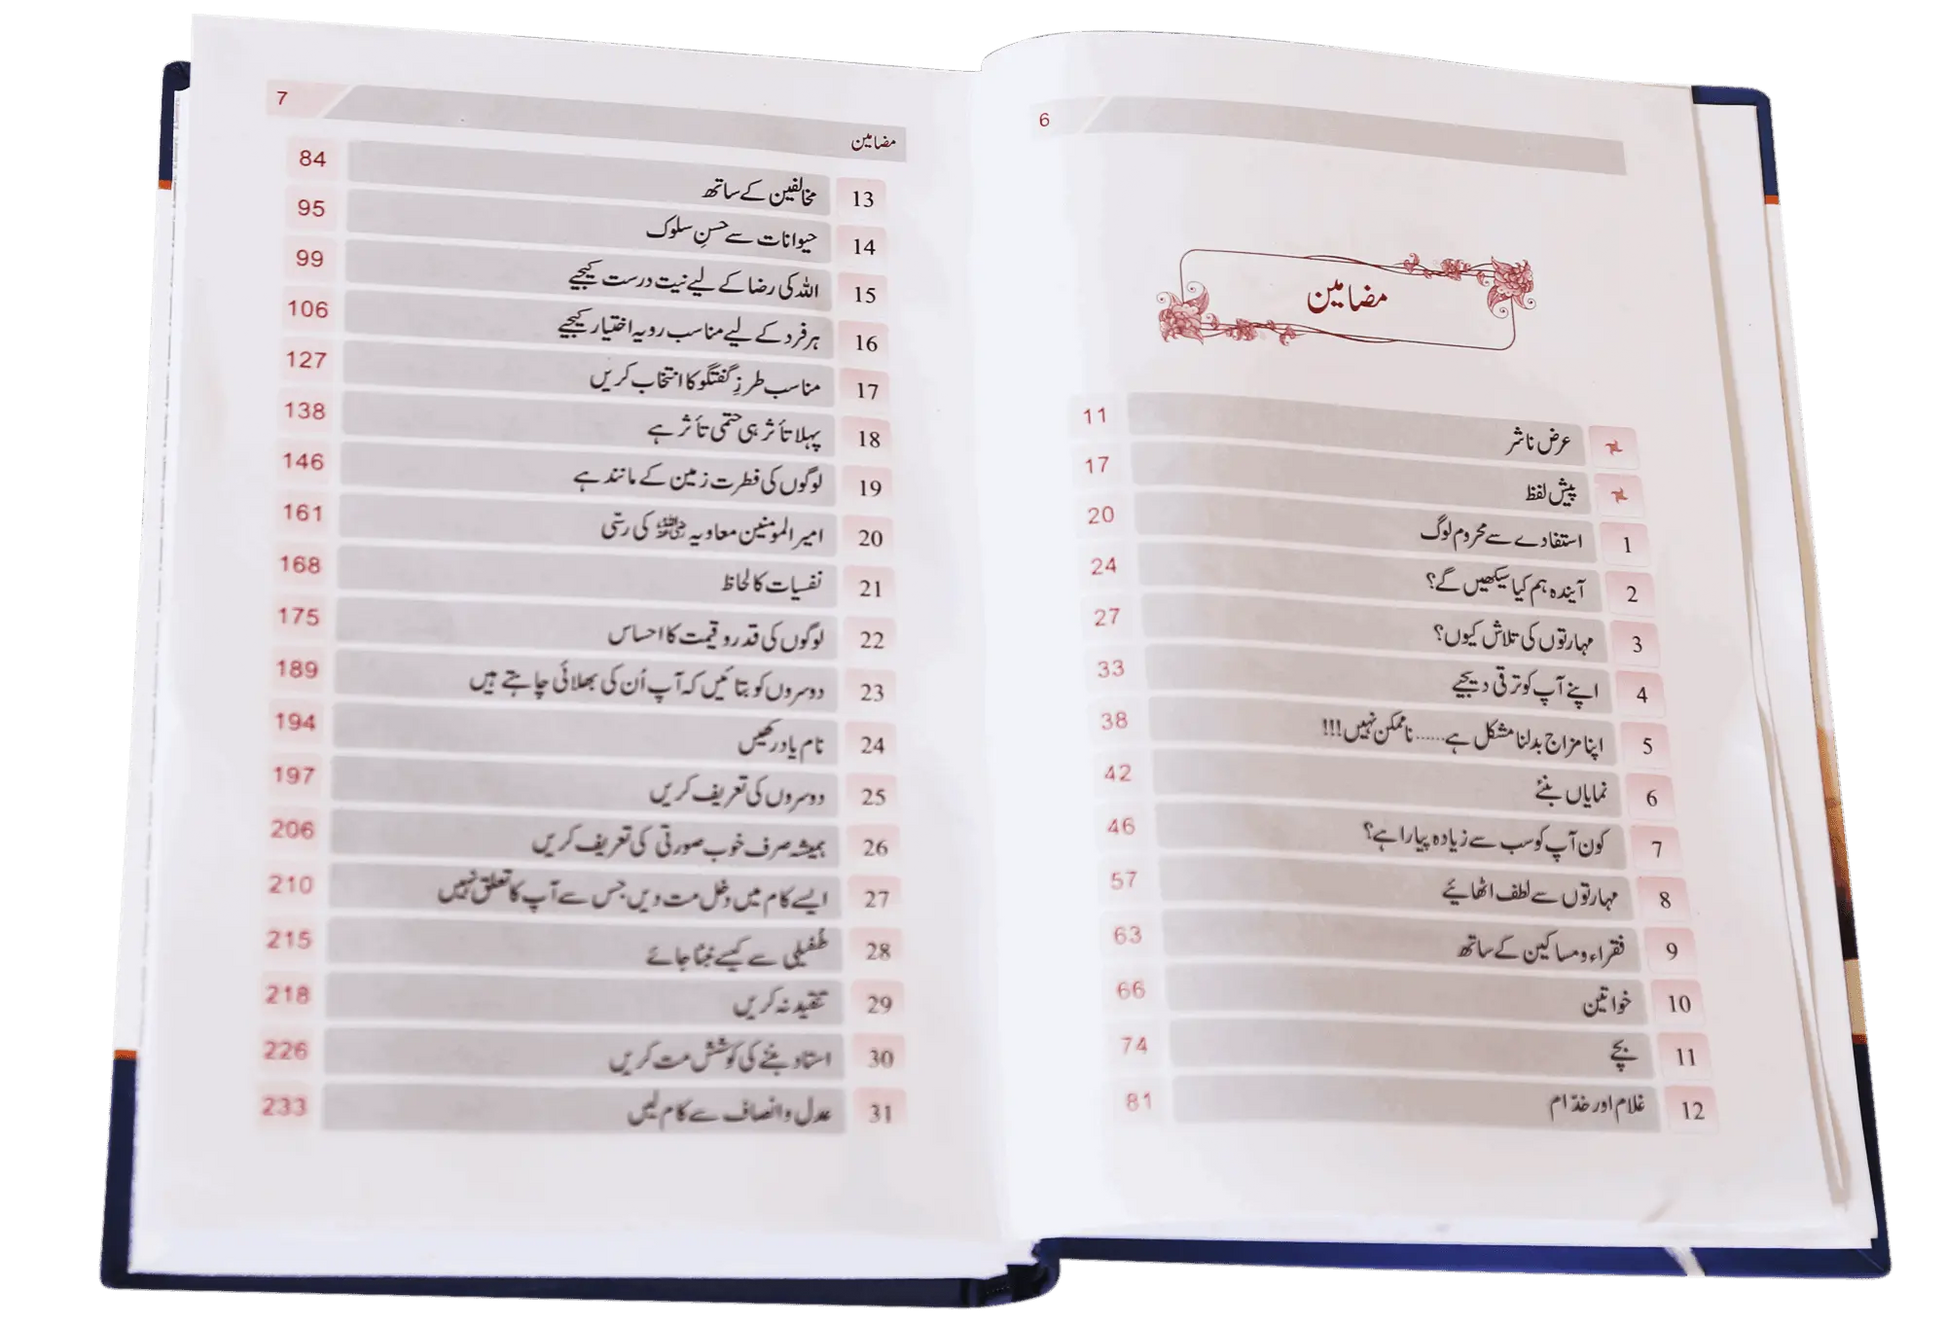 6
مضامین
عرض ناشر 11
پیش لفظ 17
1 استفادے سے محروم لوگ 20
2 آیندہ ہم کیا سیکھیں گے؟ 24
3 مہارتوں کی تلاش کیوں؟ 27
4 اپنے آپ کو ترقی دیجیے 33
5 اپنا مزاج بدلنا مشکل ہے...... ناممکن نہیں!!! 38
6 نمایاں بنئے 42
7 کون آپ کو سب سے زیادہ پیارا ہے؟ 46
8 مہارتوں سے لطف اٹھائیے 57
9 فقراء و مساکین کے ساتھ 63
10 خواتین 66
11 بچے 74
12 غلام اور خدّام 81
7
مضامین
13 مخالفین کے ساتھ 84
14 حیوانات سے حسنِ سلوک 95
15 اللہ کی رضا کے لیے نیت درست کیجیے 99
16 ہر فرد کے لیے مناسب رویہ اختیار کیجیے 106
17 مناسب طرزِ گفتگو کا انتخاب کریں 127
18 پہلا تأثر ہی حتمی تأثر ہے 138
19 لوگوں کی فطرت زمین کے مانند ہے 146
20 امیر المومنین معاویہ رضی اللہ عنہ کی رسّی 161
21 نفسیات کا لحاظ 168
22 لوگوں کی قدر و قیمت کا احساس 175
23 دوسروں کو بتائیں کہ آپ اُن کی بھلائی چاہتے ہیں 189
24 نام یاد رکھیں 194
25 دوسروں کی تعریف کریں 197
26 ہمیشہ صرف خوب صورتی کی تعریف کریں 206
27 ایسے کام میں دخل مت دیں جس سے آپ کا تعلق نہیں 210
28 طُفیلی سے کیسے نمٹا جائے 215
29 تنقید نہ کریں 218
30 استاد بننے کی کوشش مت کریں 226
31 عدل و انصاف سے کام لیں 233